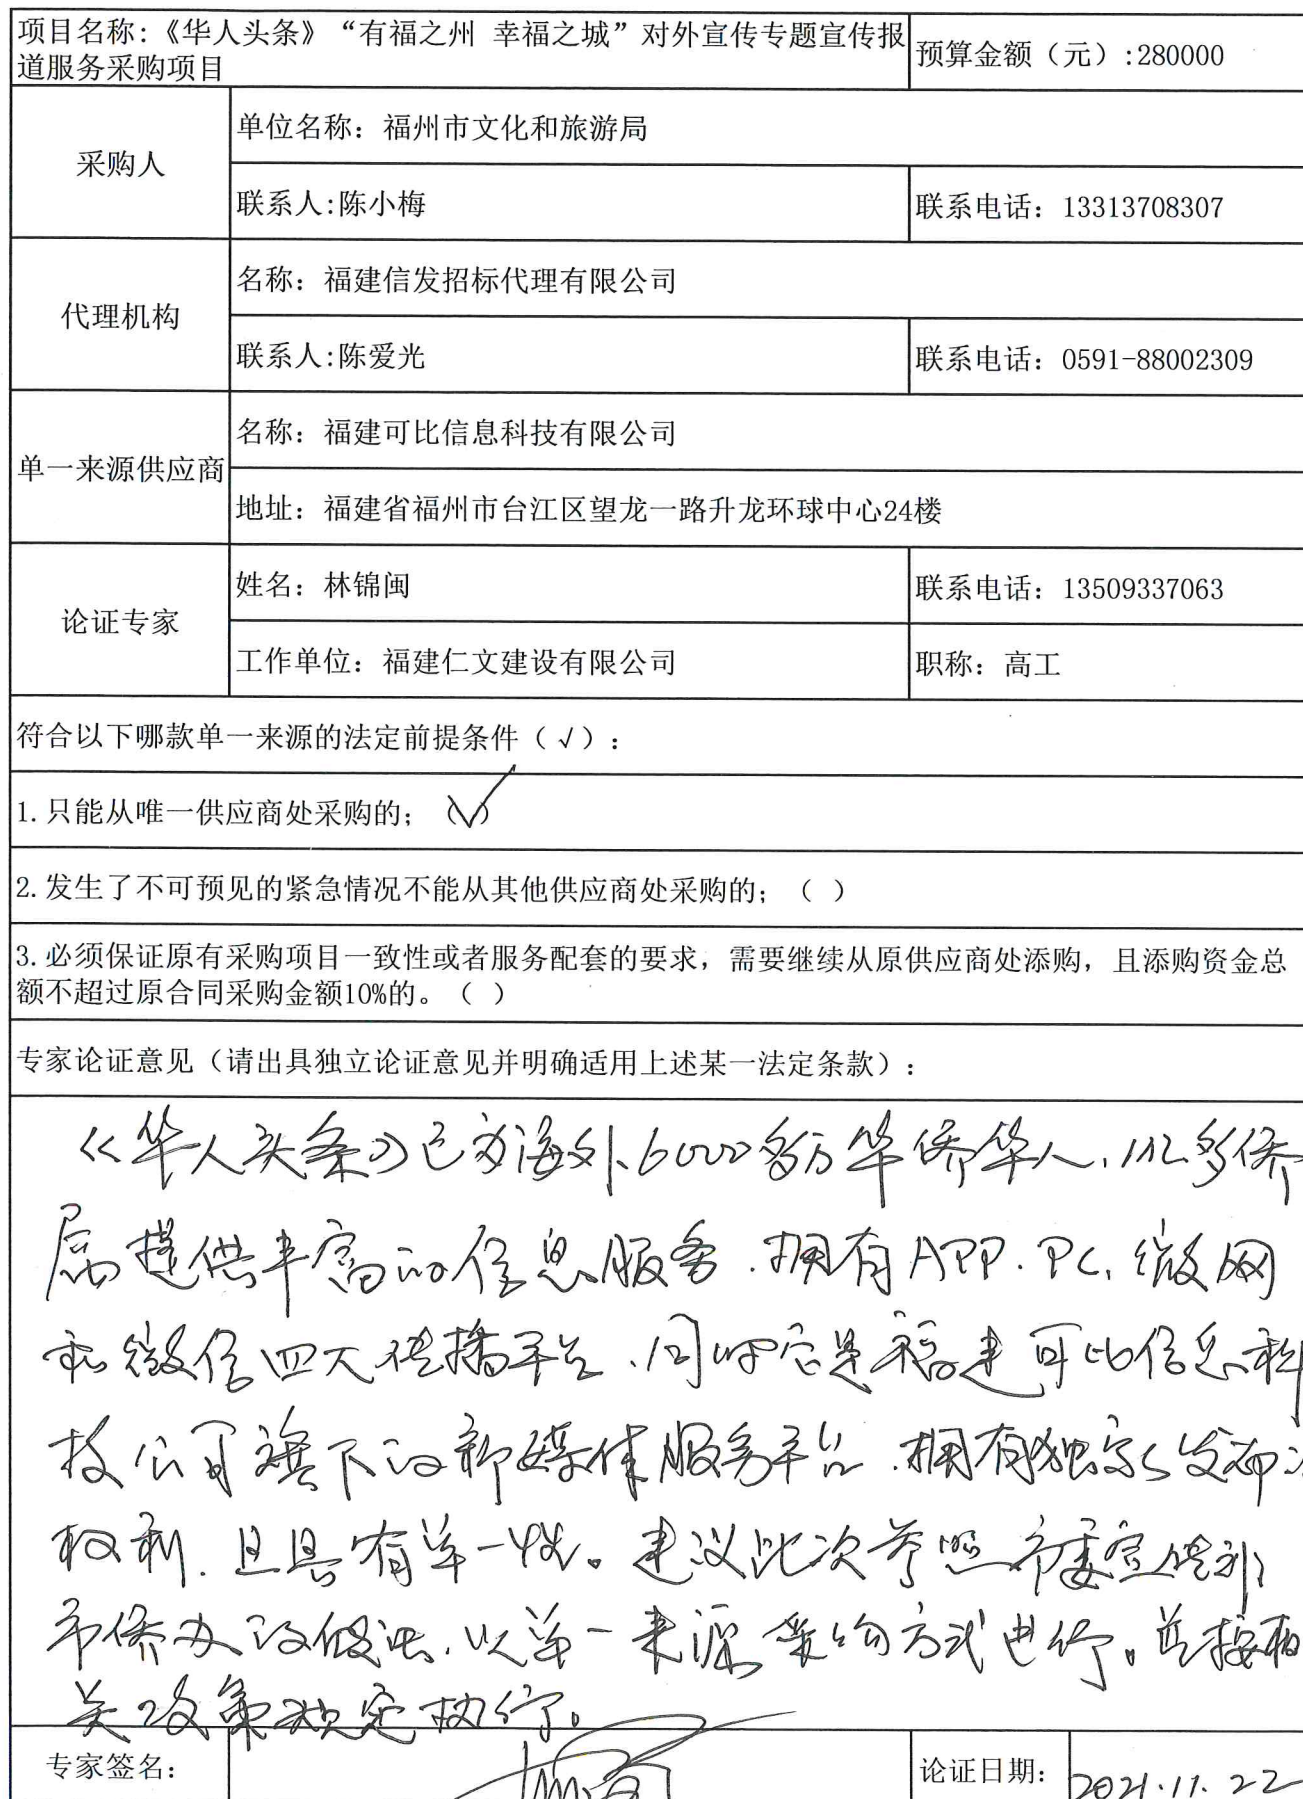 项目名称:《华人头条》“有福之州 幸福之城”对外宣传专题宣传报
道服务采购项目
预算金额（元）:280000
采购人
单位名称：福州市文化和旅游局
联系人:陈小梅
联系电话：13313708307
代理机构
名称：福建信发招标代理有限公司
联系人:陈爱光
联系电话：0591-88002309
单一来源供应商
名称：福建可比信息科技有限公司
地址：福建省福州市台江区望龙一路升龙环球中心24楼
论证专家
姓名：林锦闽
联系电话：13509337063
工作单位：福建仁文建设有限公司
职称：高工
符合以下哪款单一来源的法定前提条件（√）：
1.只能从唯一供应商处采购的；（√）
2.发生了不可预见的紧急情况不能从其他供应商处采购的；（ ）
3.必须保证原有采购项目一致性或者服务配套的要求，需要继续从原供应商处添购，且添购资金总
额不超过原合同采购金额10%的。（ ）
专家论证意见（请出具独立论证意见并明确适用上述某一法定条款）：
《华人头条》已为海外6000多万华侨华人、1亿多侨
属提供丰富的信息服务.拥有APP.PC,微网
和微信四大传播平台,同时它是福建可比信息科
技公司旗下的新媒体服务平台.拥有独家发布
权利.且具有单一性。建议此次参照市委宣传部
市侨办的做法,以单一来源采购方式进行。并按相
关政策规定执行。
专家签名：
论证日期：
2021.11.22